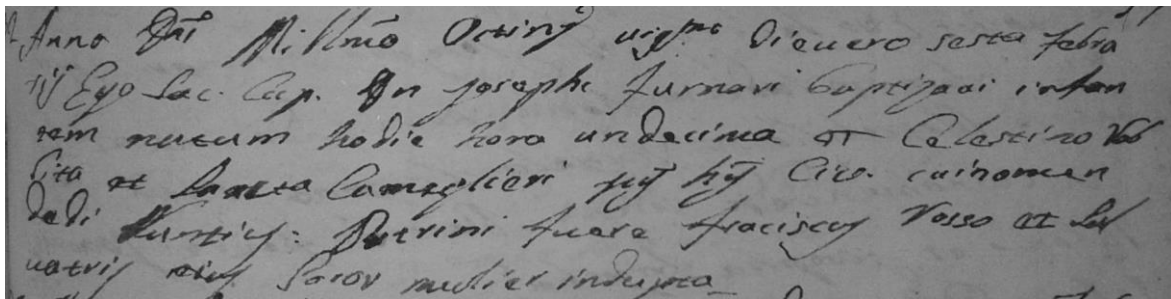 Anno Dni Millmo Octingo vigmo die vero sesta Febra
rij Ego Sac. Cap. Dn Joseph Furnari baptizavi infan
tem natum hodie hora undecima ex Celestino Vas
et Camaglieri jug huj Civ. cui nomen
dedi Nuntius: Patrini fuere Fraciscus Rosso et Sal
vatrix ejus Soror mulier